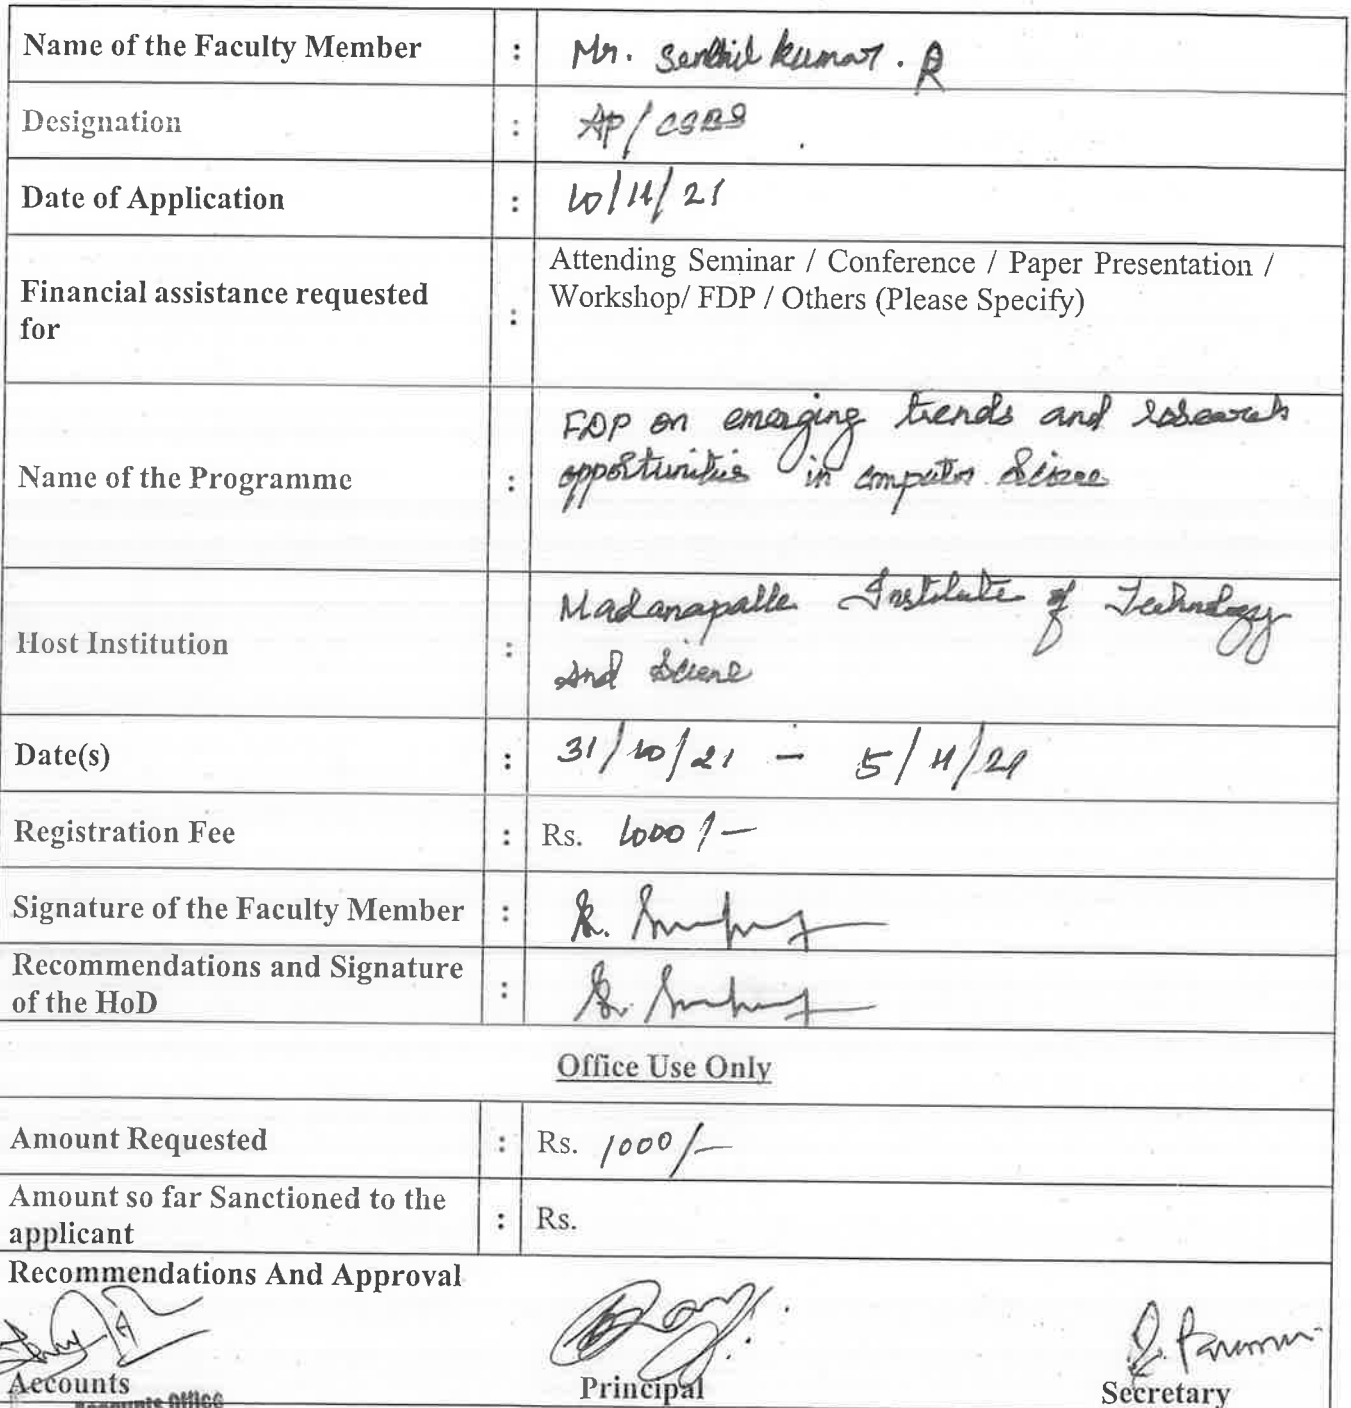 Name of the Faculty Member : Mr. Senthil kumar. R
Designation : AP/CSBS
Date of Application : 10/11/21
Financial assistance requested for : Attending Seminar / Conference / Paper Presentation /
Workshop/ FDP / Others (Please Specify)
Name of the Programme : FDP on emerging trends and research
opportunities in computer
Host Institution : Madanapalle Institute of Technology
and Sciene
Date(s) : 31/10/21 - 5/11/21
Registration Fee : Rs. 1000/-
Signature of the Faculty Member :
Recommendations and Signature
of the HoD :
Office Use Only
Amount Requested : Rs. 1000/-
Amount so far Sanctioned to the
applicant : Rs.
Recommendations And Approval
Accounts Principal Secretary
Accounts Office